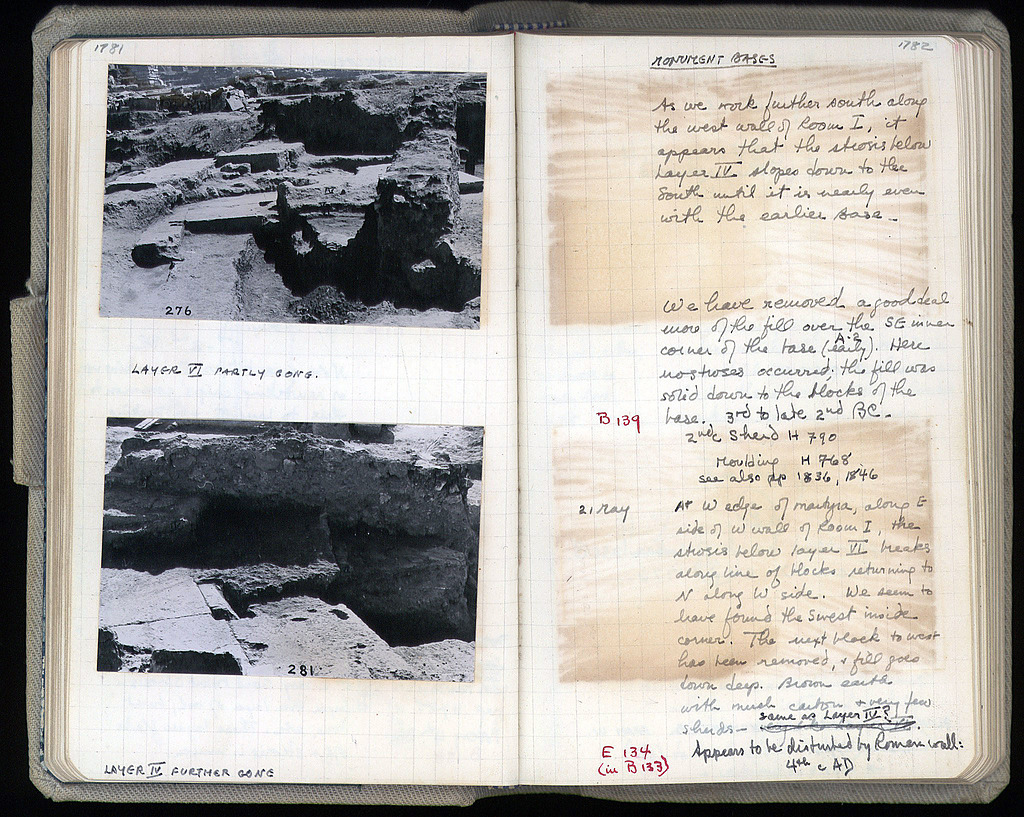 1781
276
LAYER VI PARTLY GONE.
281
LAYER IV FURTHER GONE
1782
MONUMENT BASES
As we work further south along
the west wall of Room I, it
appears that the strosis below
Layer IV slopes down to the
South until it is nearly even
with the earlier base -
We have removed a good deal
more of the fill over the SE inner
corner of the base (early). Here
A?
no stroses occurred; the fill was
solid down to the blocks of the
base. 3rd to late 2nd BC -
B 139
2nd c Sherd H 790
Moulding H 768
see also pp 1836, 1846
21 May
At W edge of martyra, along E
side of W wall of Room I, the
strosis below layer VI breaks
along line of blocks returning to
N along W side. We seem to
have found the SWest inside
corner. The next block to west
has been removed, + fill goes
down deep. Brown earth
with much carbon + very few
sherds - same as Layer IV?
Appears to be disturbed by Roman wall:
4th c AD
E 134
(in B 133)